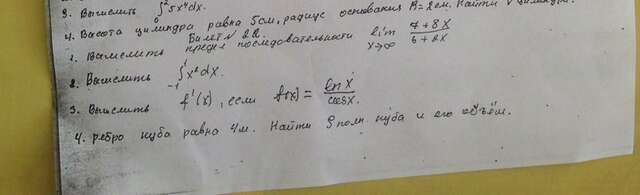 3. Вычислить ∫₀² 5x⁴dx.
4. Высота цилиндра равна 5см, радиус основания R=2см. Найти V цилиндра.
Билет № 22
1. Вычислить предел последовательности lim x→∞ (7+8x)/(6+2x)
2. Вычислить ∫₋₁¹ x²dx.
3. Вычислить f'(x), если f(x) = ln x/cos x.
4. Ребро куба равна 4м. Найти S полн. куба и его объём.